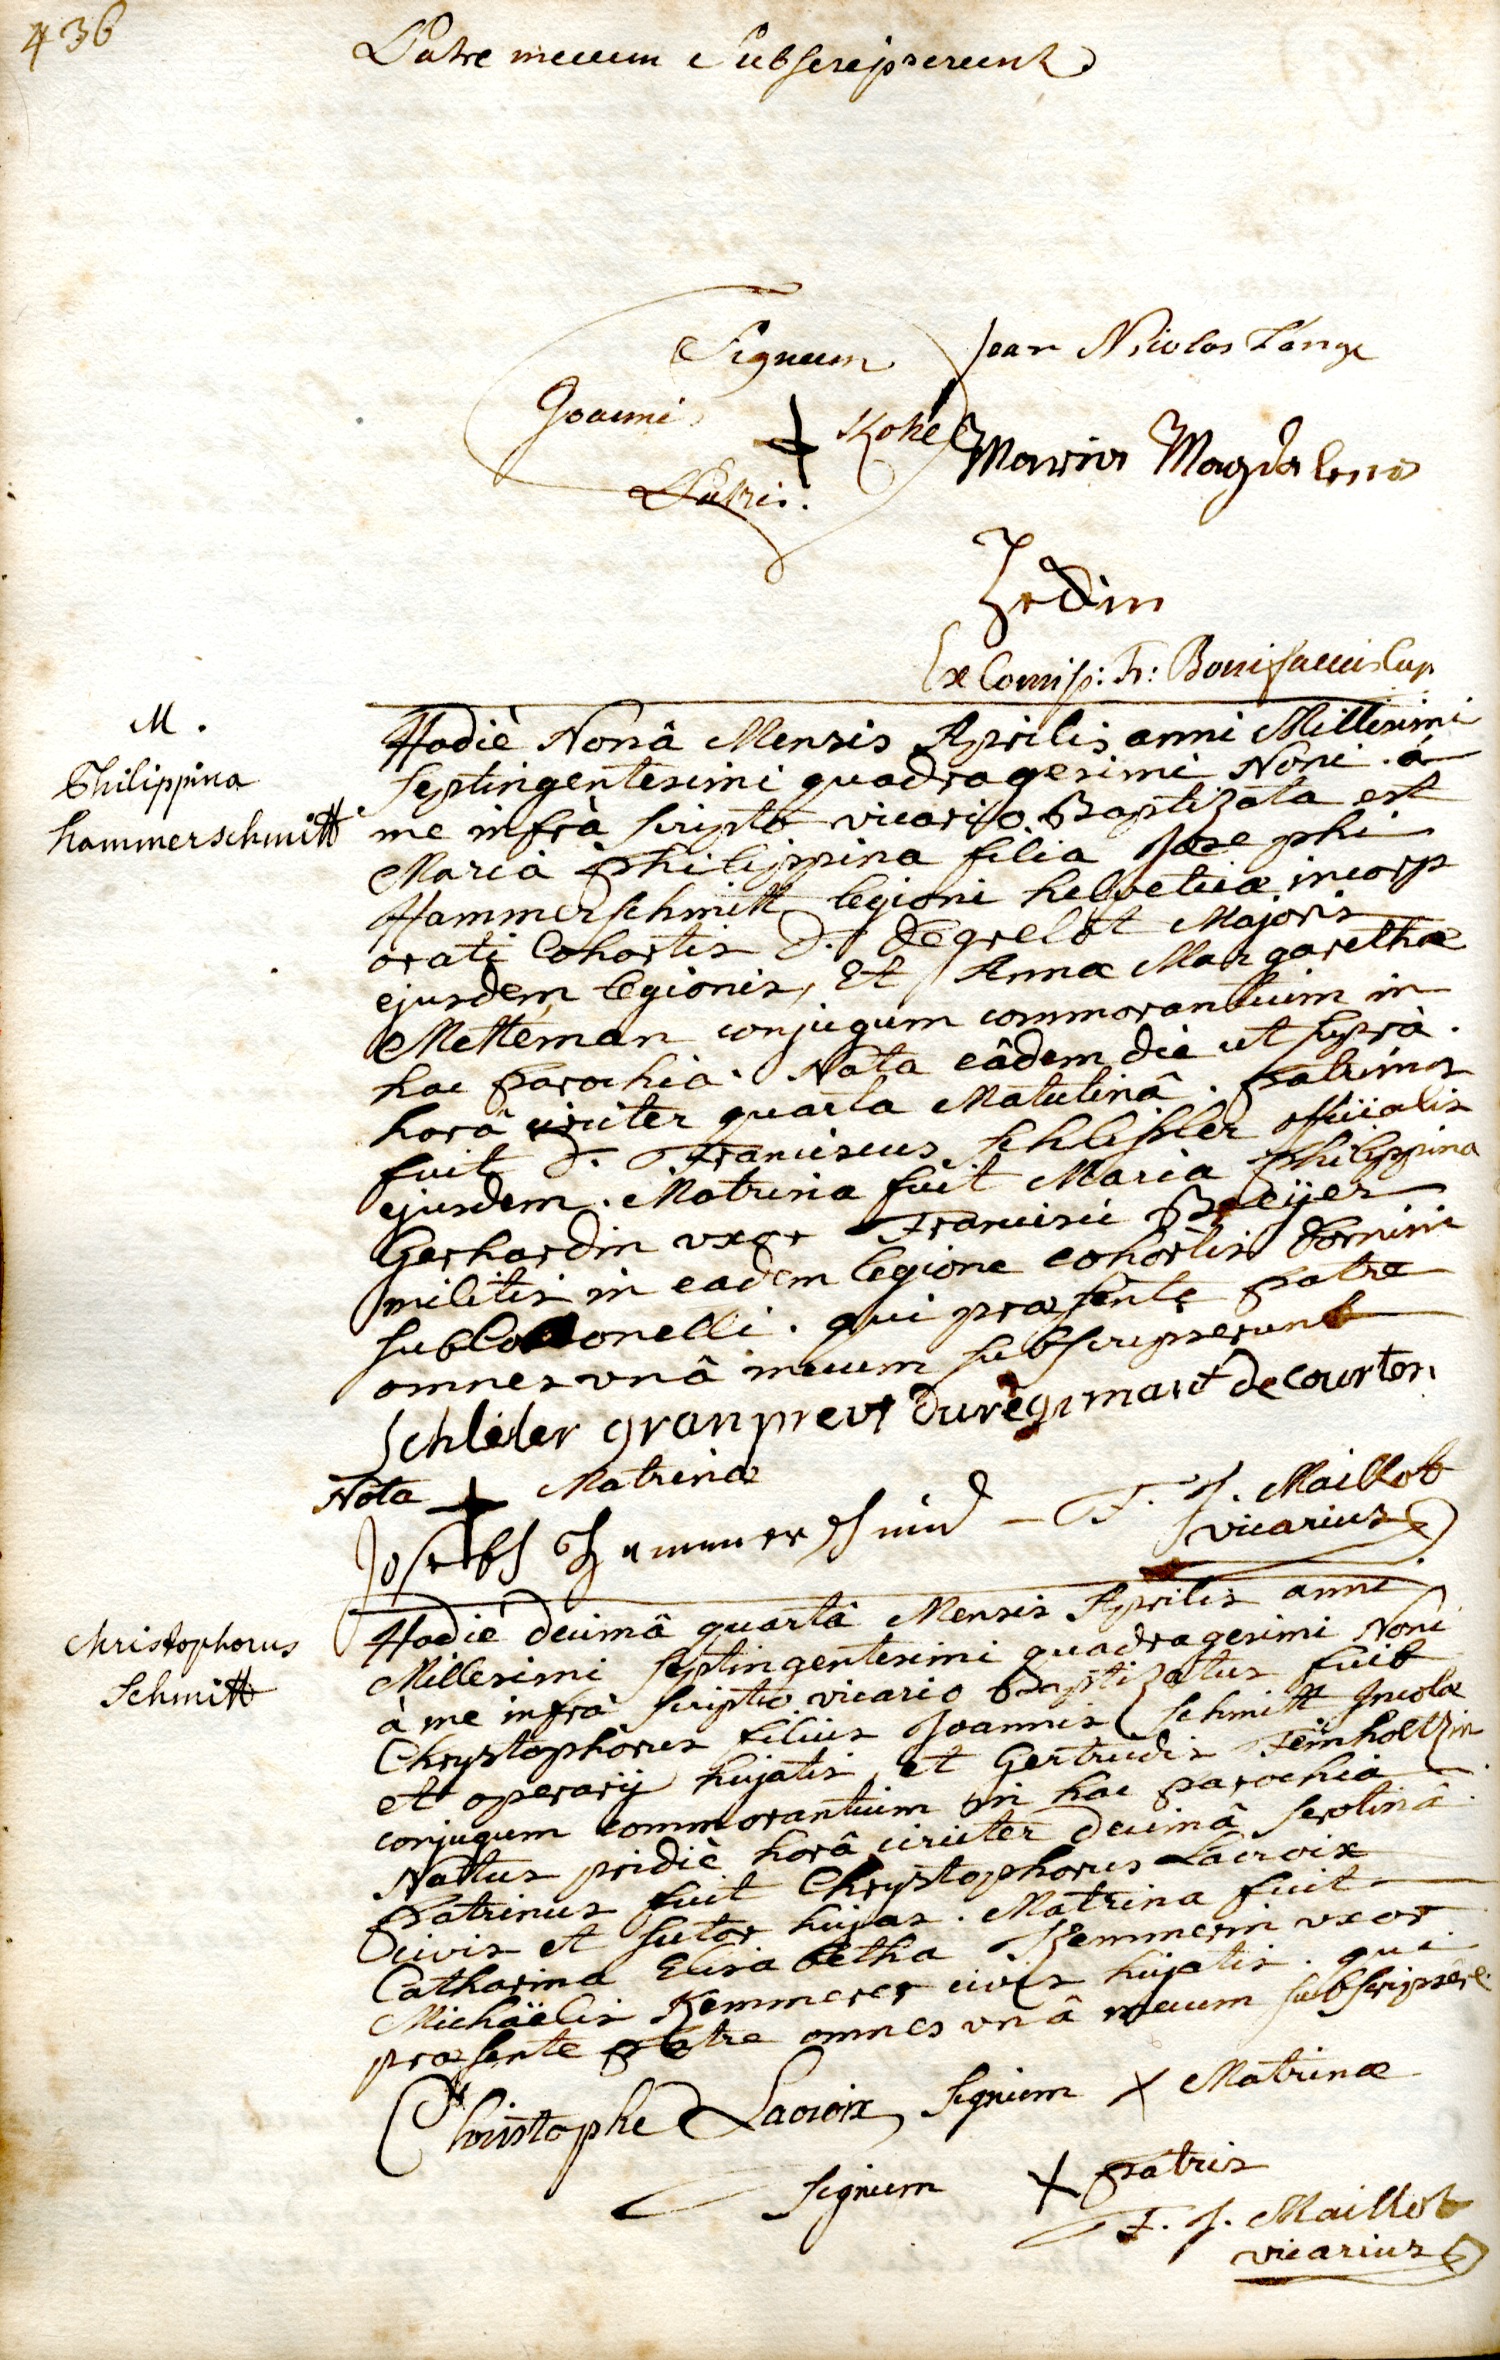 436
Patre mecum Subscripserunt.
Signum Jean Nicolas Lange
Joanni + Kohe Maria Magdalena
Patris.
Zedin
Ex Comiss: Fr: Bonifacius Cap
M.
Philippina
hammerschmitt
Hodiè Nonâ Mensis Aprilis anni Millesimi
septingentesimi quadragesimi Noni. á
me infrà scripto vicario Baptizata est
Maria Philippina filia Josephi
Hammerschmitt legioni helveticæ incorp
orati Cohortis D. Degrelot Majoris
ejusdem legionis, Et Annæ Margarethæ
Metteman conjugum commorantium in
hac parochia. Nata eâdem die ut suprà.
horâ circiter quarta Matutinâ. patrinus
fuit D. Franciscus Schlissler officialis
ejusdem. Matrina fuit Maria philippina
Gerhardin vxor Francisci Breijer
militis in eadem legione cohortis Domini
subColonelli. qui præsente patre
omnes vnâ mecum subscripserunt
Schleler granprevt du regimant de courten
Nota + Matrinæ
Joseph Hammerschmid F. J. Maillot
vicarius
Christophorus
Schmitt
Hodiè decimâ quartâ Mensis Aprilis anni
Millesimi septingentesimi quadragesimi Noni
à me infrà scripto vicario Baptizatus fuit
Chrystophorus filius Joannis Schmitt Incolæ
et operarij hujatis, et Gertrudis Feinholtzin
conjugum commorantium in hac parochia
Nattus pridiè horâ circiter decimâ serotinâ.
patrinus fuit Chrystophorus Lacroix
Civis et sutor hujas. Matrina fuit
Catharina Elisabetha Kemmerin vxor
Michaëlis Kemmerer civis hujatis. qui
præsente patre omnes vnâ mecum subscripsêre.
Christophe Lacroix Signum X Matrinæ
Signum X patris
F. J. Maillot
vicarius